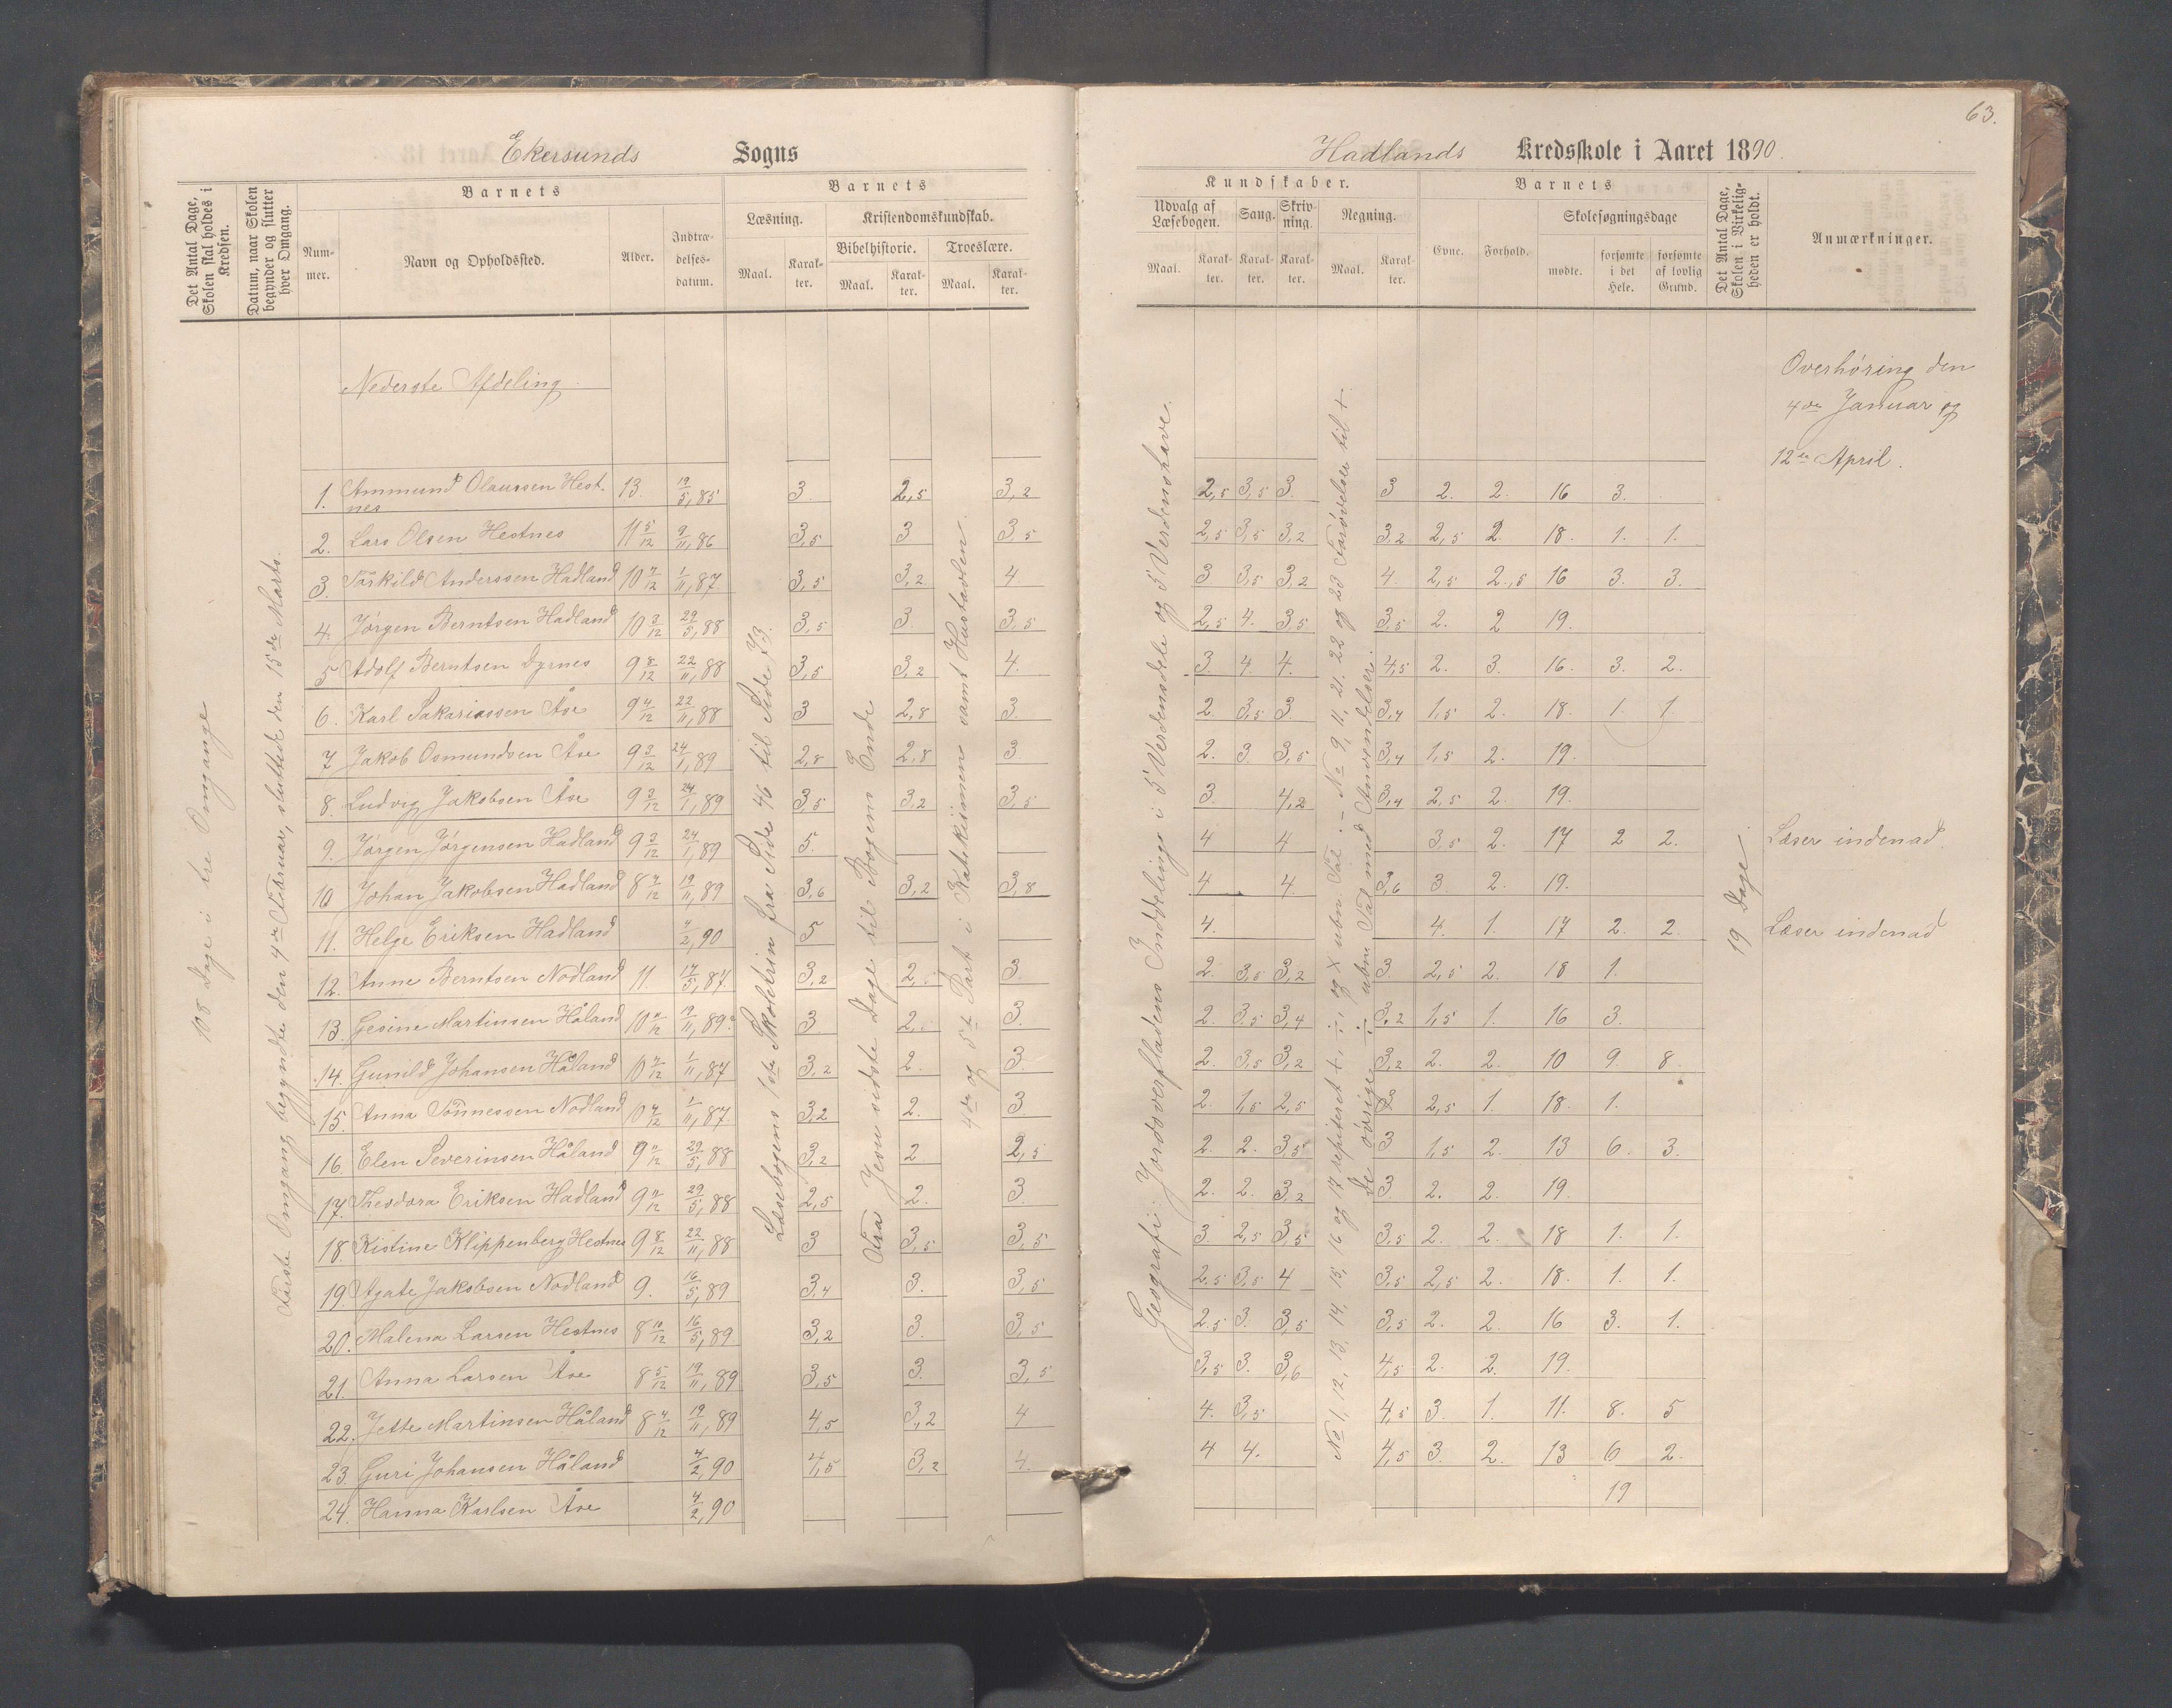 63.
Ekersunds Sogns
Hadlands Kredsskole i Aaret 1890.
Det Antal Dage, Skolen skal holdes i Kredsen.
Datum, naar Skolen begynder og slutter hver Omgang.
Barnets
Nummer.
Navn og Opholdssted.
Alder.
Indtrædelsesdatum.
Barnets
Læsning.
Maal.
Karakter.
Kristendomskundskab.
Bibelhistorie.
Maal.
Karakter.
Troeslære.
Maal.
Karakter.
Kundskaber.
Udvalg af Læsebogen.
Maal.
Karakter.
Sang.
Karakter.
Skrivning.
Karakter.
Regning.
Maal.
Karakter.
Barnets
Evne.
Forhold.
Skolesøgningsdage
mødte.
forsømte i det Hele.
forsømte af lovlig Grund.
Det Antal Dage, Skolen i Virkeligheden er holdt.
Anmærkninger.
Nederste Afdeling.
Overhøring den
4de Januar og
12te April.
108 Dage i tre Omgange
Første Omgang begyndte den 4de Februar, sluttede den 15de Marts.
Læsebogens 1ste Skoletrin fra Side 46 til Side 73.
Fra Jesu sidste Dage til Bogens Ende
4de og 5te Part i Katekismen samt Hustavlen.
Geografi: Jordoverfladens Inddeling i 5 Verdensdele og 5 Verdenshave.
No 1, 12, 13, 14, 15, 16 og 17 repeteret +, ÷, og × ubn. Tal. – No 9, 11, 21, 22 og 23 Forøvelser til +.
de øvrige ÷ ubn. Tal med Anvendelser.
19 Dage.
1. Ammund Olaussen Hestnes 13. 19/5, 85 3. 2,5 3,2 2,5 3,5 3. 3 2. 2. 16 3.
2. Lars Olsen Hestnes 11 5/12 9/11, 86 3,5 3 3,5 2,5 3,5 3,2 3,2 2,5 2 18. 1. 1.
3. Tørkild Anderssen Hadland 10 7/12 1/11, 87. 3,5 3,2 4 3. 3,5 3,2 4. 2,5 2,5 16 3. 3.
4. Jørgen Berntsen Hadland 10 3/12 29/5, 88 3,5 3. 3,5 2,5 4. 3,5 3,5 2. 2 19.
5 Adolf Berntsen Dyrnes 9 8/12 22/11, 88 3,5 3,2 4. 3. 4. 4. 4,5 2. 3. 16. 3. 2.
6. Karl Sakariassen Åse 9 4/12 22/11, 88 3 2,8 3. 2. 3,5 3. 3,4 1,5 2. 18. 1. 1
7 Jakob Osmundsen Åse 9 3/12 24/1, 89 2,8 2,8 3 2. 3 3,5 3,4 1,5 2. 19.
8. Ludvig Jakobsen Åse 9 2/12 24/1, 89 3,5 3,2 3,5 3. 4,2 3,4 2,5 2. 19.
9. Jørgen Jørgensen Hadland 9 3/12 24/1, 89 5. 4 4 3,5 2. 17 2 2. Læser indenad.
10 Johan Jakobsen Hadland 8 4/12 19/11, 89 3,6 3,2 3,8 4 4. 3,6 3. 2. 19.
11. Helge Eriksen Hadland 4/2, 90 5 4. 4. 1. 17 2. 2. Læser indenad
12. Anne Berntsen Nodland 11. 17/5, 87. 3,2 2. 3. 2. 3,5 3,2 3. 2,5 2. 18 1.
13. Gesine Martinsen Håland 10 4/12 19/11, 89. 3 2. 3. 2. 3,5 3,4 3,2 1,5 1. 16 3.
14. Gunild Johansen Håland 10 7/12 1/11, 87 3,2 2. 3. 2. 3,5 3,2 3,2 2. 2. 10 9. 8.
15. Anna Tønnessen Nodland 10 4/12 1/11, 87. 3,2 2. 3. 2. 1,5 2,5 2,5 1. 18. 1.
16. Elen Severinsen Håland 9 11/12 29/5, 88 3,2 2 2,5 2. 2. 3,5 3 1,5 2. 13 6. 3.
17. Theodora Eriksen Hadland 9 11/12 29/5, 88 2,5 2. 3. 2. 2. 3,2 3. 2. 2. 19.
18. Kistine Klippenberg Hestnes 9 8/12 22/11, 88 3 3,5 3,5 3. 2,5 3,5 3,5 2. 2. 18 1. 1.
19. Agate Jakobsen Nodland 9. 16/5, 89 3,4 3. 3,5 2,5 3,5 4 3,5 2,5 2. 18. 1. 1.
20. Malena Larsen Hestnes 8 10/12 16/5, 89 3,2 3. 3,5 2,5 3. 3,5 3,5 2. 2. 16 3. 1.
21. Anna Larsen Åse 8 5/12 19/11, 89 3,5 3. 3,5 3,5 3. 3,6 4,5 2. 2. 19.
22. Jette Martinsen Håland 8 4/12 19/11, 89 4,5 3,2 4 4. 3,5 4,5 3. 1. 11. 8. 5
23. Guri Johansen Håland 4/2, 90 4,5 3,2 4. 4 4. 4,5 3. 2. 13 6 2.
24. Hanna Karlsen Åse 4/2, 90 19